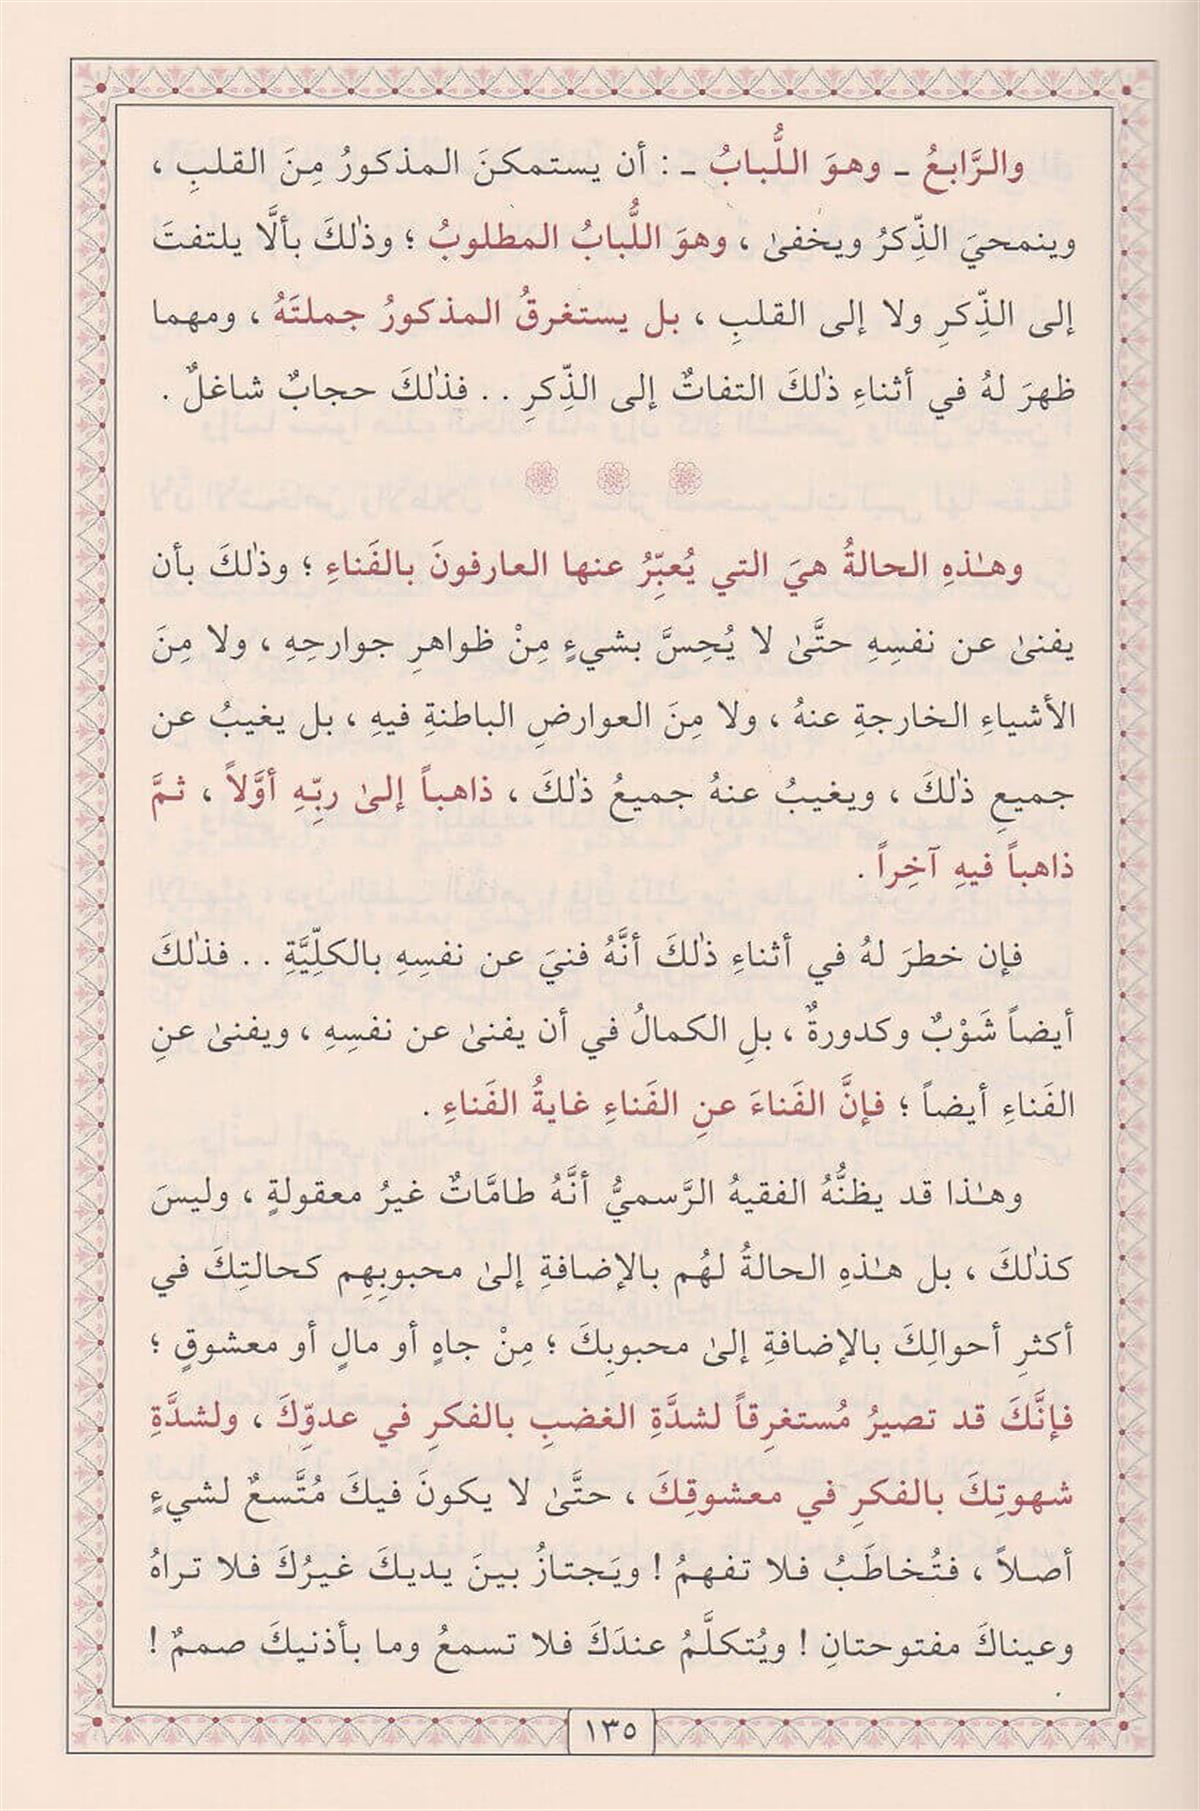 والرَّابعُ ـ وهوَ اللُّبابُ ـ : أن يستمكنَ المذكورُ مِنَ القلبِ ،
وينمحيَ الذِّكرُ ويخفىٰ ، وهوَ اللُّبابُ المطلوبُ ؛ وذٰلكَ بألَّا يلتفتَ
إلى الذِّكرِ ولا إلى القلبِ ، بل يستغرقُ المذكورُ جملتَهُ ، ومهما
ظهرَ لهُ في أثناءِ ذٰلكَ التفاتٌ إلى الذِّكرِ . . فذٰلكَ حجابٌ شاغلٌ .
وهـٰذهِ الحالةُ هيَ التي يُعبِّرُ عنها العارفونَ بالفَناءِ ؛ وذٰلكَ بأن
يفنىٰ عن نفسِهِ حتَّىٰ لا يُحِسَّ بشيءٍ مِنْ ظواهرِ جوارحِهِ ، ولا مِنَ
الأشياءِ الخارجةِ عنهُ ، ولا مِنَ العوارضِ الباطنةِ فيهِ ، بل يغيبُ عن
جميعِ ذٰلكَ ، ويغيبُ عنهُ جميعُ ذٰلكَ ، ذاهباً إلىٰ ربِّهِ أوَّلاً ، ثمَّ
ذاهباً فيهِ آخِراً .
فإن خطرَ لهُ في أثناءِ ذٰلكَ أنَّهُ فنيَ عن نفسِهِ بالكلِّيَّةِ . . فذٰلكَ
أيضاً شَوْبٌ وكدورةٌ ، بلِ الكمالُ في أن يفنىٰ عن نفسِهِ ، ويفنىٰ عنِ
الفَناءِ أيضاً ؛ فإنَّ الفَناءَ عنِ الفَناءِ غايةُ الفَناءِ .
وهـٰذا قد يظنُّهُ الفقيهُ الرَّسميُّ أنَّهُ طامَّاتٌ غيرُ معقولةٍ ، وليسَ
كذٰلكَ ، بل هـٰذهِ الحالةُ لهُم بالإضافةِ إلىٰ محبوبِهِم كحالتِكَ في
أكثرِ أحوالِكَ بالإضافةِ إلىٰ محبوبِكَ ؛ مِنْ جاهٍ أو مالٍ أو معشوقٍ ؛
فإنَّكَ قد تصيرُ مُستغرِقاً لشدَّةِ الغضبِ بالفكرِ في عدوِّكَ ، ولشدَّةِ
شهوتِكَ بالفكرِ في معشوقِكَ ، حتَّىٰ لا يكونَ فيكَ مُتَّسعٌ لشيءٍ
أصلاً ، فتُخاطَبُ فلا تفهمُ ! ويَجتازُ بينَ يديكَ غيرُكَ فلا تراهُ
وعيناكَ مفتوحتانِ ! ويُتكلَّمُ عندَكَ فلا تسمعُ وما بأذنيكَ صممٌ !
١٣٥